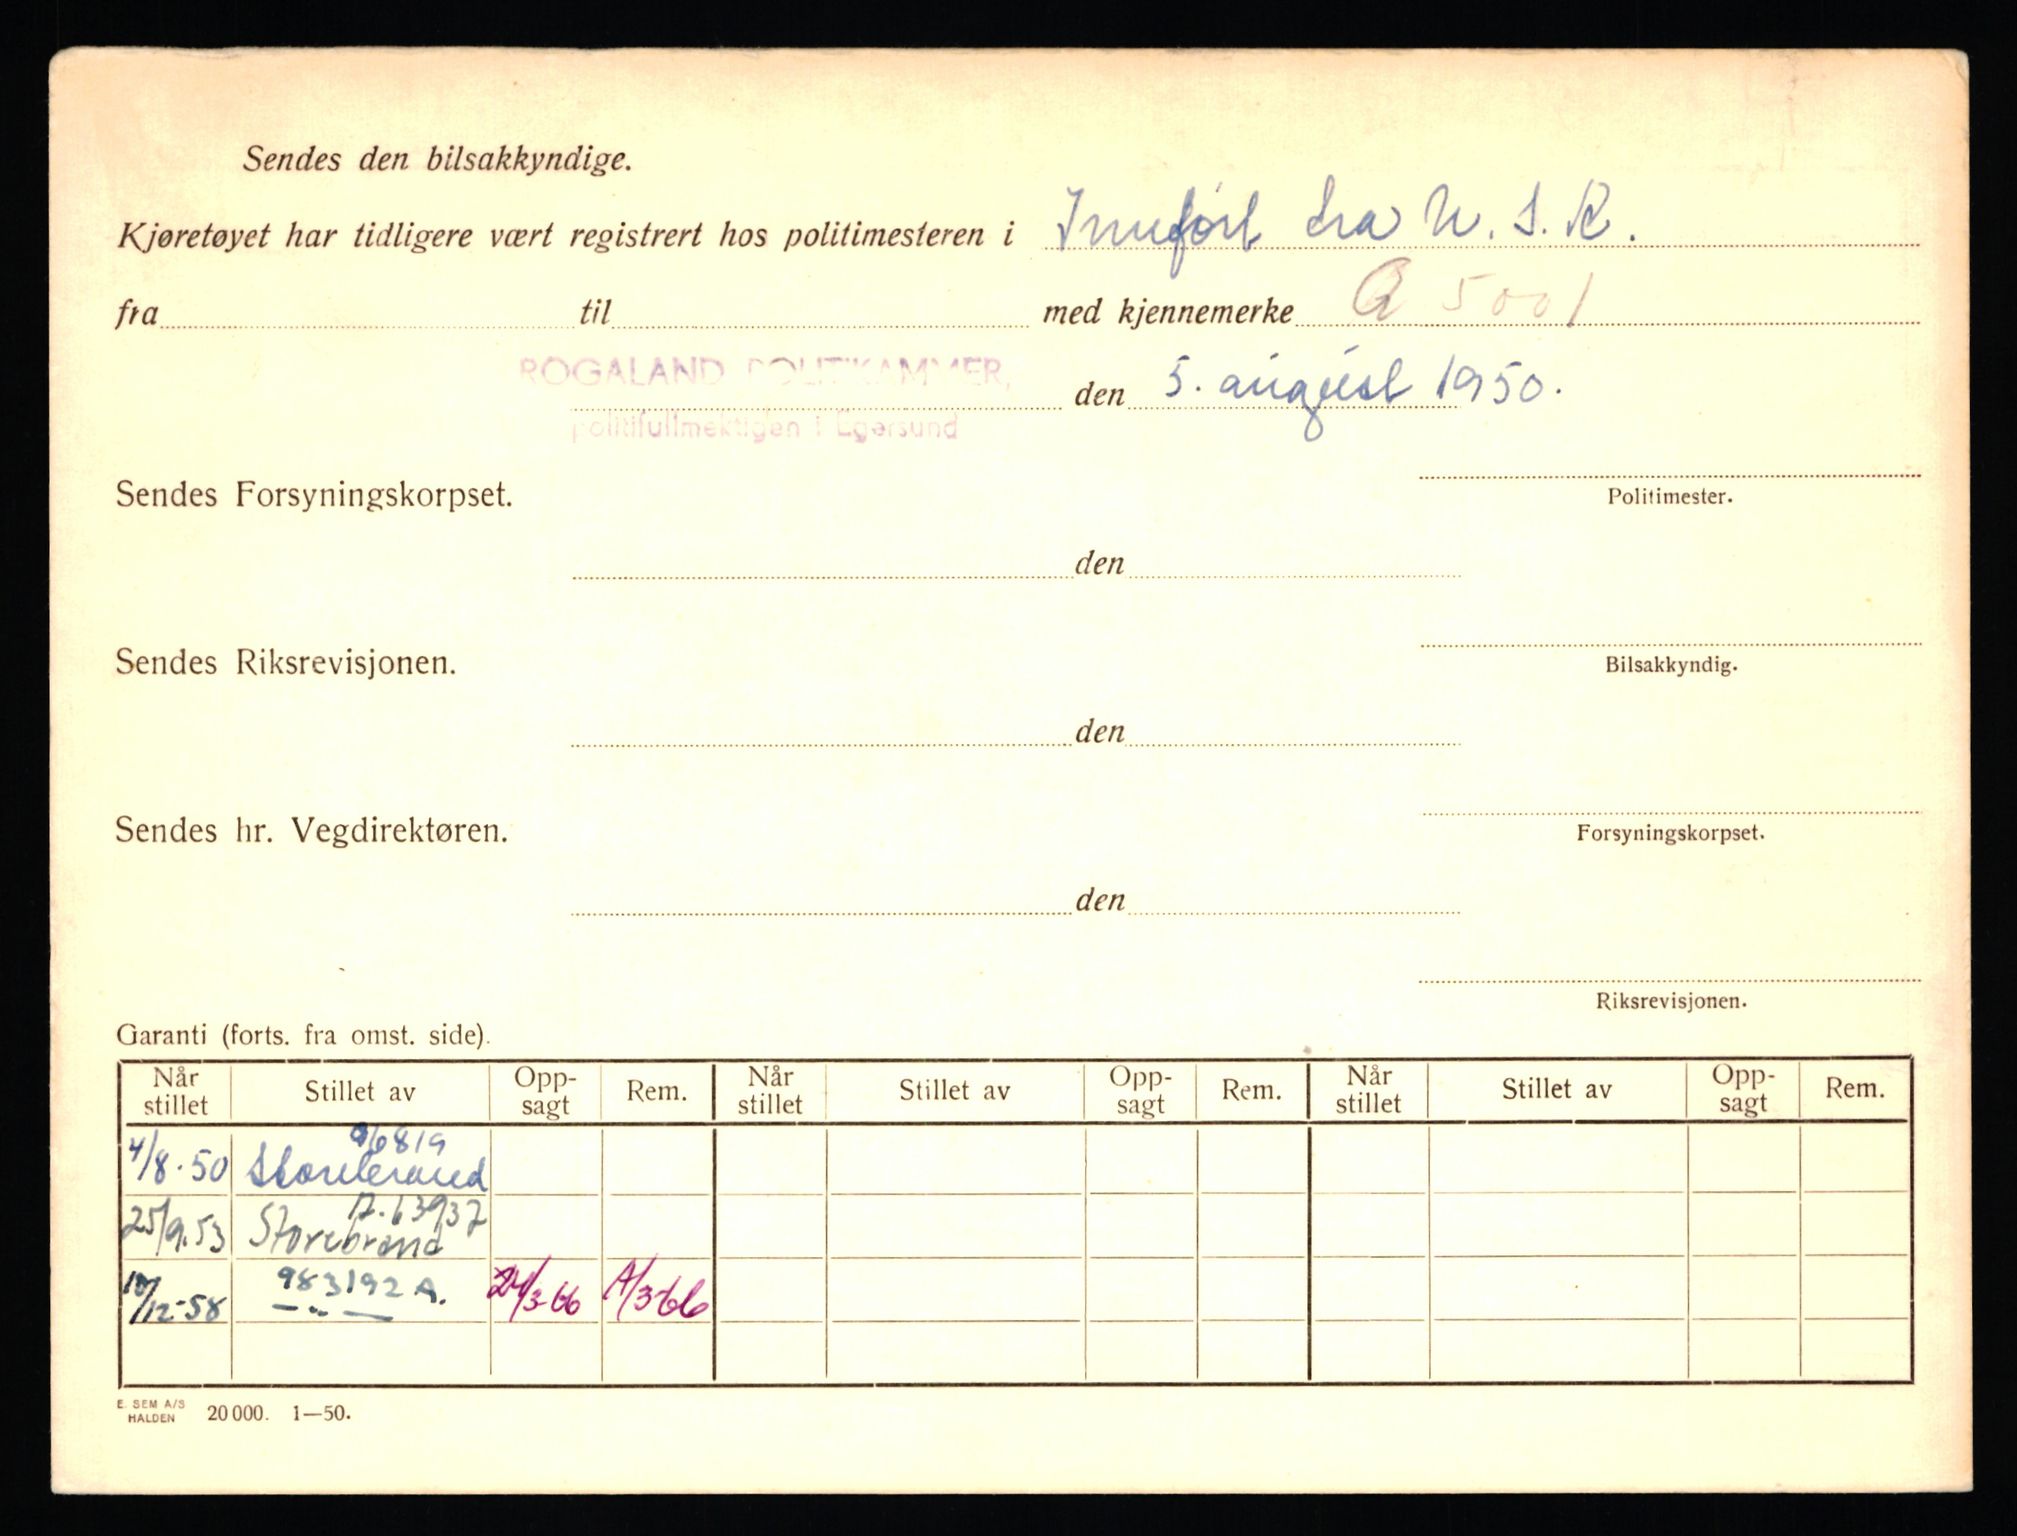 Sendes den bilsakkyndige.
Kjøretøyet har tidligere vært registrert hos politimesteren i Innført fra U. S. A.
fra til med kjennemerke A 5001
ROGALAND POLITIKAMMER, den 5. august 1950.
politifullmektigen i Egersund
Sendes Forsyningskorpset.
Politimester.
den
Sendes Riksrevisjonen.
Bilsakkyndig.
den
Sendes hr. Vegdirektøren.
Forsyningskorpset.
den
Riksrevisjonen.
Garanti (forts. fra omst. side).
Når stillet Stillet av Opp-sagt Rem. Når stillet Stillet av Opp-sagt Rem. Når stillet Stillet av Opp-sagt Rem.
96819
4/8.50 Storebrand
A.63937
25/9.53 Storebrand
983192 A.
/12-58 — „ — 24/3-66 /3-66
E. SEM A/S
HALDEN 20 000. 1—50.